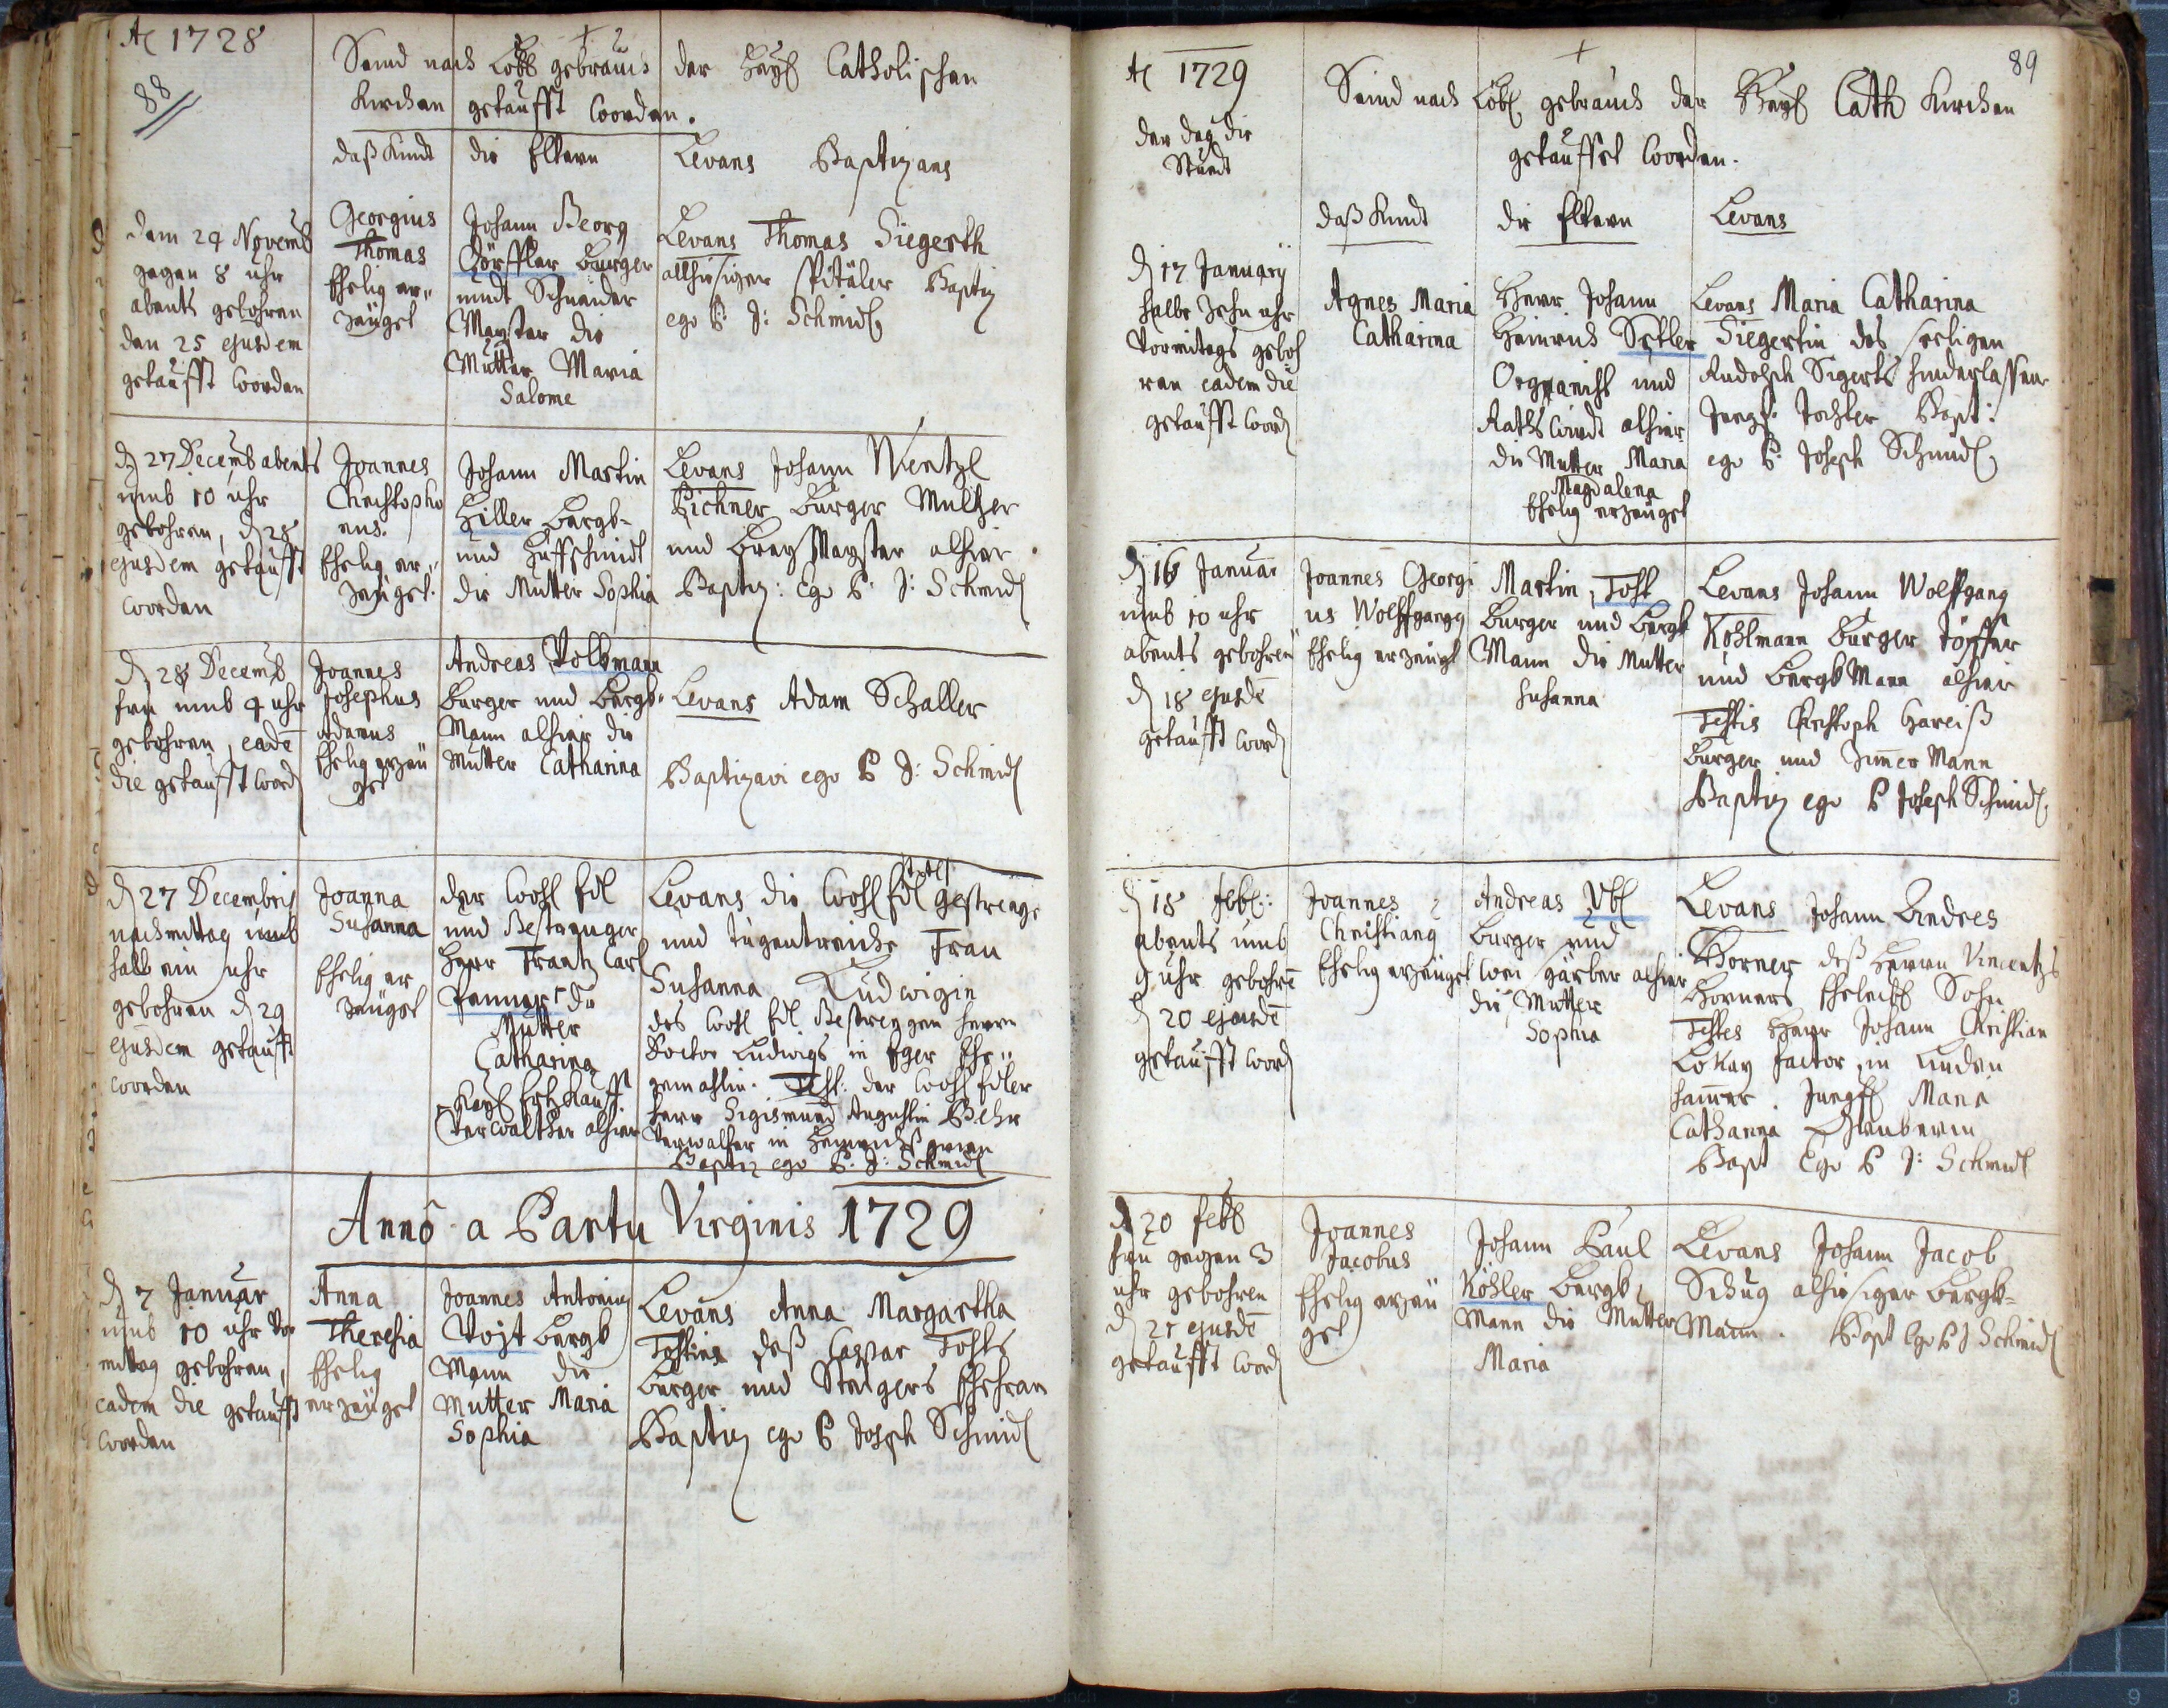 Aͦ 1728
88
Seind nach Löbl gebrauch der Heyl Catholischen
Kirchen getaufft worden.
daß Kindt
die Eltern
Levans Baptizans
Dem 24 Novemb
gegen 8 uhr
abents gebohren
den 25 ejusdem
getaufft worden
Georgius
Thomas
Ehelig er„
zeüget
Johann Georg
Dörffler burger
undt Schneider
Mayster die
Mutter Maria
Salome
Levans Thomas Siegerth
allhiesiger Spitäler Baptiz
ego P: J: Schmidl
d 27 Decemb abents
umb 10 uhr
gebohren, d 28
ejusdem getaufft
worden
Joannes
Christopho
rus.
Ehelig er„
zeüget.
Johann Martin
Hiller bergb-
und Huffschmidt
die Mutter Sophia
Levans Johann Wentzl
Pichner Burger Multzer
und breyMayster alhier.
Baptiz: Ego P: J: Schmidl
d 28 Decemb
frü umb 4 uhr
gebohren, eadē
die getaufft word
Joannes
Josephus
Adamus
Ehelig erzeü
get
Andreas Volkmann
Burger und bergk-
Mann alhier die
Mutter Catharina
Levans Adam Schaller
Baptizavi ego P J: Schmidl
d 27 Decembris
nachmittag umb
halb ein uhr
gebohren d 29
ejusdem getaufft
worden
Joanna
Susanna
Ehelig er
zeüget
der wohl Edl
und Gestrenger
Herr Frantz Carl
Jenner die
Mutter
Catharina
Kayl Ertzkauff
Verwalther alhier
Levans die wohl Edl gestrenge
und tugentreiche Frau
Susanna Ludwigin
des wohl Edl Gestrengen Herrn
Doctor Ludwigs in Eger Ehe„
gemahlin. Test: der wohl Edler
Herr Sigismund Augustin Behr
Verwalter in Heinrichsgrien
Baptiz ego P: J: Schmidl
Anno a Partu Virginis 1729
d 7 Januar
umb 10 uhr Vor
mittag gebohren,
eadem die getaufft
worden
Anna
Theresia
Ehelig
erzeüget
Joannes Antonius
Vojt bergk
Mann die
Mutter Maria
Sophia
Levans Anna Margaretha
Tostin deß Caspar Tosts
burger und Steigers Ehefrau
Baptiz ego P Joseph Schmidl
Aͦ 1729
89
Seind nach Löbl gebrauch der Heyl Cath Kirchen
getauffet worden.
der dag die
Stundt
daß Kindt
die Eltern
Levans
d 17 Januarÿ
halbe Zehn uhr
Vormitags geboh
ren eadem die
getaufft word
Agnes Maria
Catharina
Herr Johann
Heinrich Setler
Organist und
Rathsfreindt alhier
die Mutter Maria
Magdalena
Ehelig erzeüget
Levans Maria Catharina
Siegertin des seeligen
Rudolph Sigerts hinderlassene
Jungf: Tochter Bapt:
ego P: Joseph Schmidl
d 16 Januar
umb 10 uhr
abents gebohren
d 18 ejusdē
getaufft word
Joannes Georgi
us Wolffgang
Ehelig erzeügt
Martin Tost
burger und bergk
Mann die Mutter
Susanna
Levans Johann Wolffgang
Kohlmann burger Töpffer
und bergkMann alhier
Testis Christoph Hareiß
burger und ZimmerMann
Baptiz ego P Joseph Schmidl
d 18 Febr:
abents umb
9 uhr gebohrē
d 20 ejusdē
getaufft word
Joannes
Christiang
Ehelig erzeüget
Andreas Ubl
burger und
weisgärber alhier
die Mutter
Sophia
Levans Johann Andres
Horner deß Herrn Vincentzs
Horners Eheleibl Sohn
Testes Herr Johann Christian
Lokay Factor in Linden
hammer. Jungf Maria
Catharina Glauberin
Bapt Ego P J: Schmidl
d 20 Febr
frü gegen 3
uhr gebohren
d 21 ejusdē
getaufft word
Joannes
Jacobus
Ehelig erzeü
get
Johann Paul
Köhler bergk
Mann die Mutter
Maria
Levans Johann Jacob
Schug alhiesiger bergk-
Mann. Bapt Ego P J Schmidl